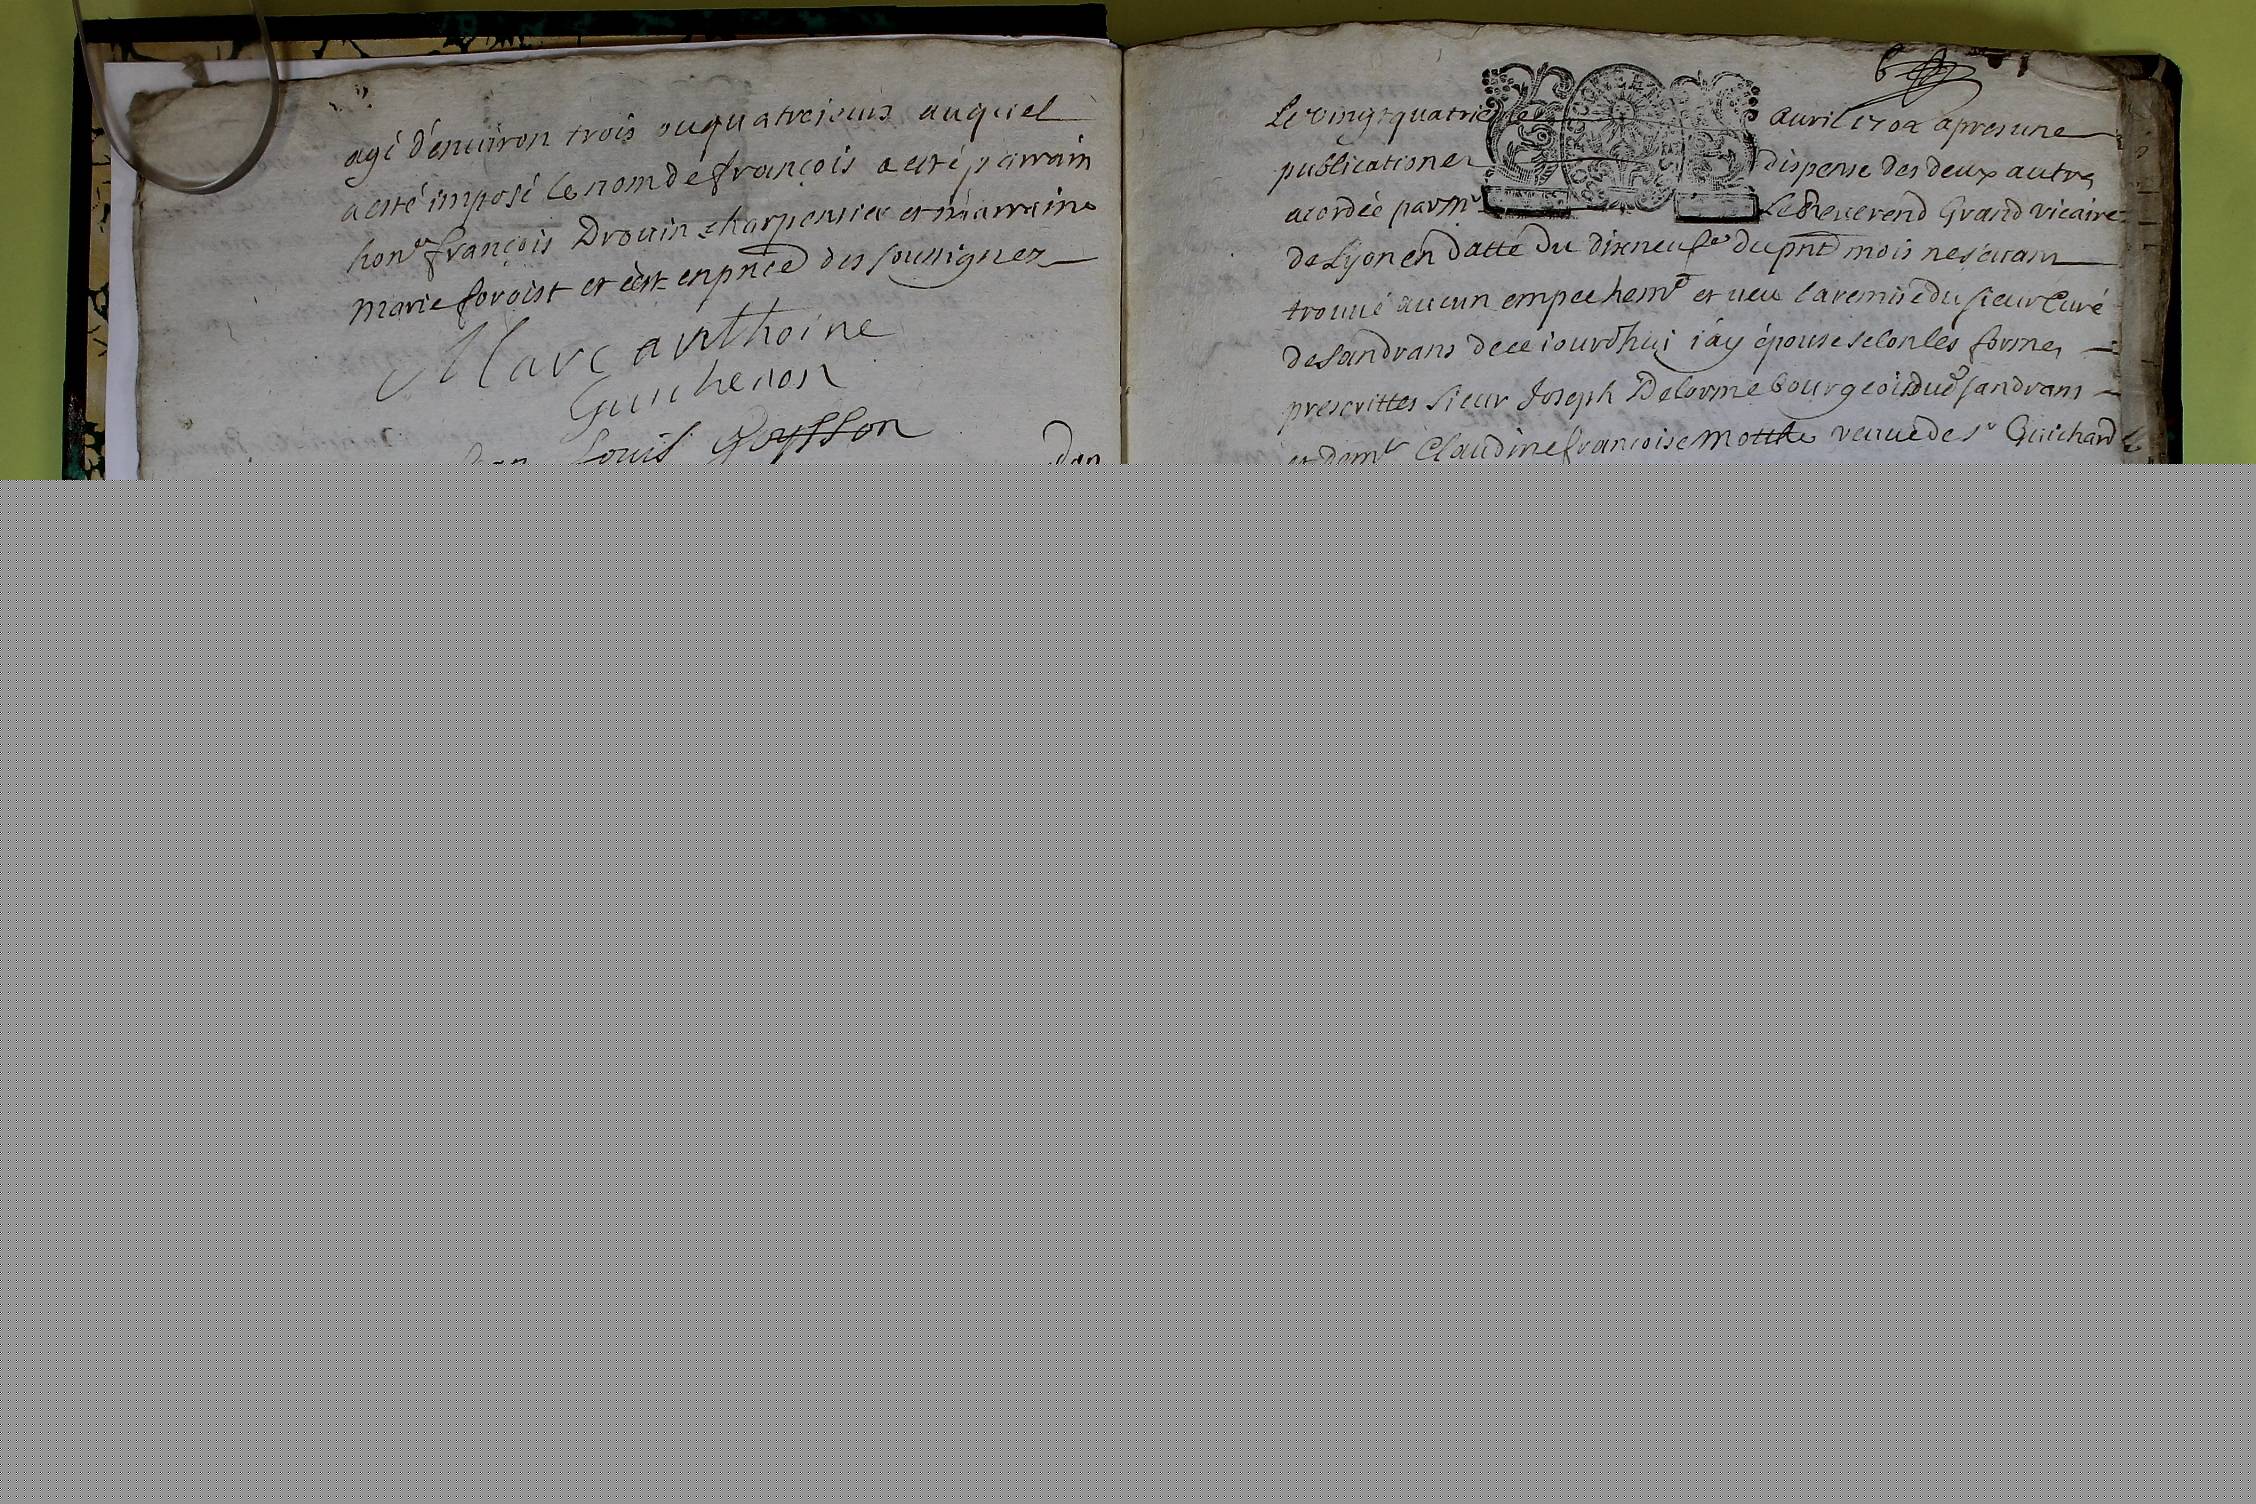 agé d'enuiron trois ou quatre jours auquel
a esté imposé le nom de françois a esté parrain
hon.ble françois Drouin charpentier et marraine
marie foroist et c'est en pnce des soussignez
Marc anthoine
Guichenon
Louis Goysson
Le vingt quatrie auril 1702 apres une
publication et dispense des deux autres
acordée par mr Le Reuerend Grand vicaire
de Lyon en datte du dixneufe du pnt mois ne s'etant
trouué aucun empechemt et ueu la remise du sieur Curé
de sandrans de ce iourdhui i'ay épousé selon les formes
prescrittes sieur Joseph Delorme bourgeois dud sandrans
et demlle Claudine françoise Motthe veuue de sr Guichard